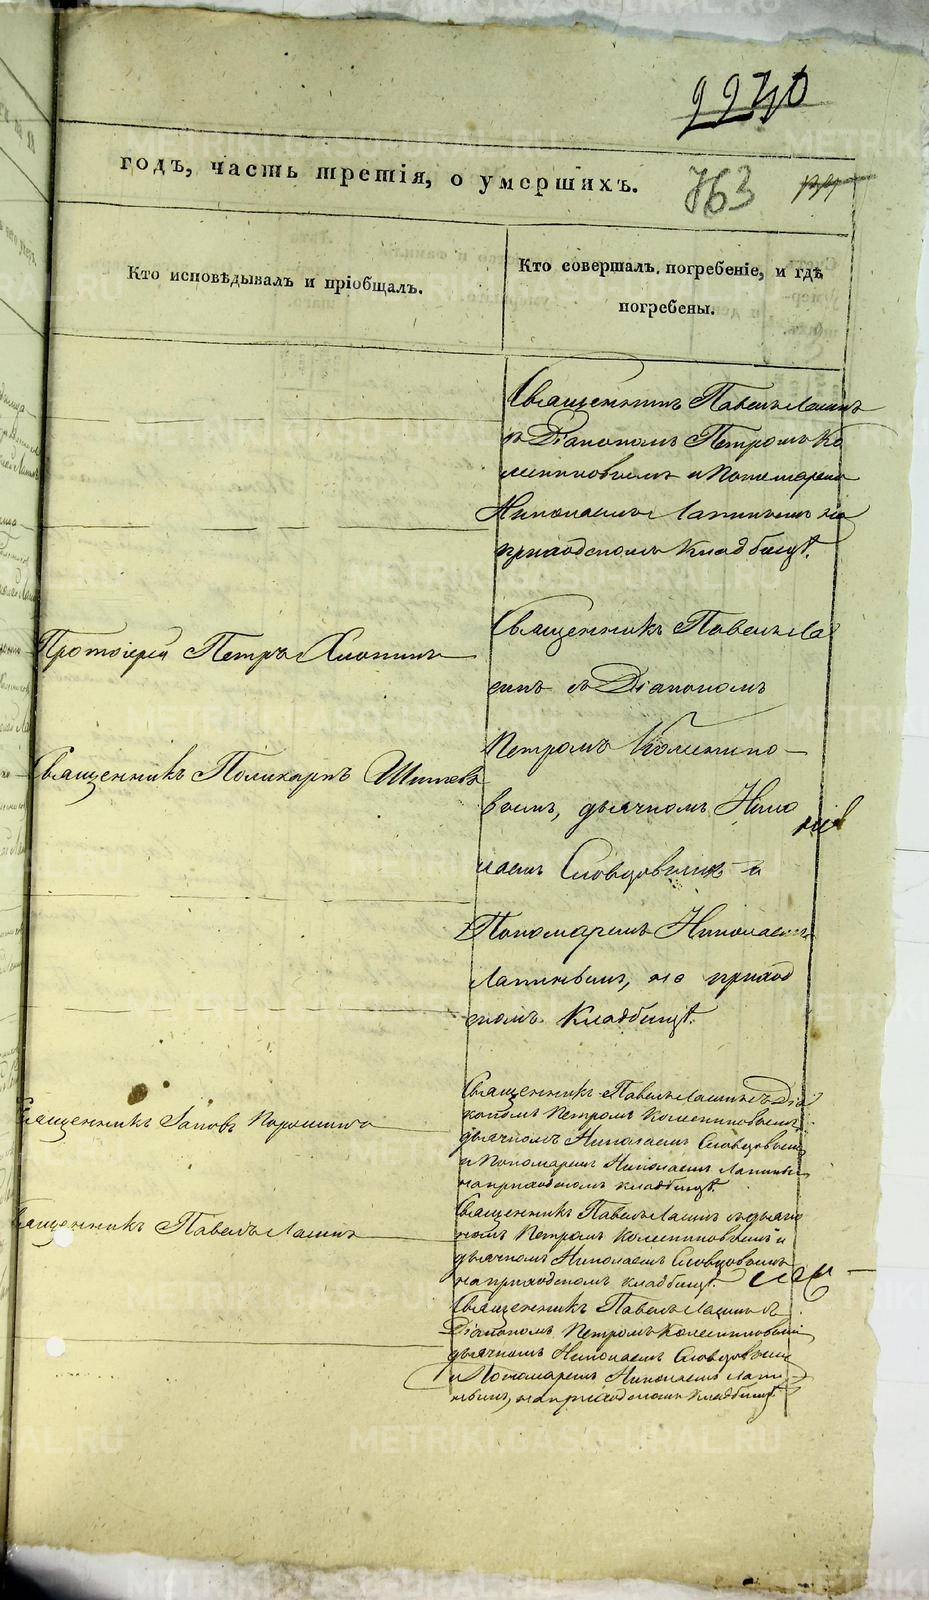 2240
годъ, часть третія, о умершихъ.
763
Кто исповѣдывалъ и пріобщалъ.
Кто совершалъ погребеніе, и гдѣ
погребены.
Священникъ Павелъ Лашинъ
съ Діакономъ Петромъ Ко
лесниковымъ и Пономаремъ
Николаемъ Лапинымъ на
приходскомъ кладбищѣ.
Протоіерей Петръ Хлопинъ
Священникъ Поликарпъ Шишевъ
Священникъ Павелъ Ла
шинъ съ Діакономъ
Петромъ Колеснико
вымъ, дьячкомъ Нико
лаемъ Словцовымъ и
Пономаремъ Николаемъ
Лапинымъ, на приход
скомъ Кладбищѣ.
Священникъ Іаковъ Порошинъ
Священникъ Павелъ Лашинъ съ Діа
кономъ Петромъ Колесниковымъ,
дьячкомъ Николаемъ Словцовымъ
и Пономаремъ Николаемъ Лапинымъ
на приходскомъ кладбищѣ.
Священникъ Павелъ Лашинъ
Священникъ Павелъ Лашинъ съ діако
номъ Петромъ Колесниковымъ и
дьячкомъ Николаемъ Словцовымъ
на приходскомъ кладбищѣ.
Священникъ Павелъ Лашинъ съ
Діакономъ Петромъ Колесниковымъ
дьячкомъ Николаемъ Словцовымъ
и Пономаремъ Николаемъ Лапи
нымъ, на приходскомъ кладбищѣ.
METRIKI.GASO-URAL.RU